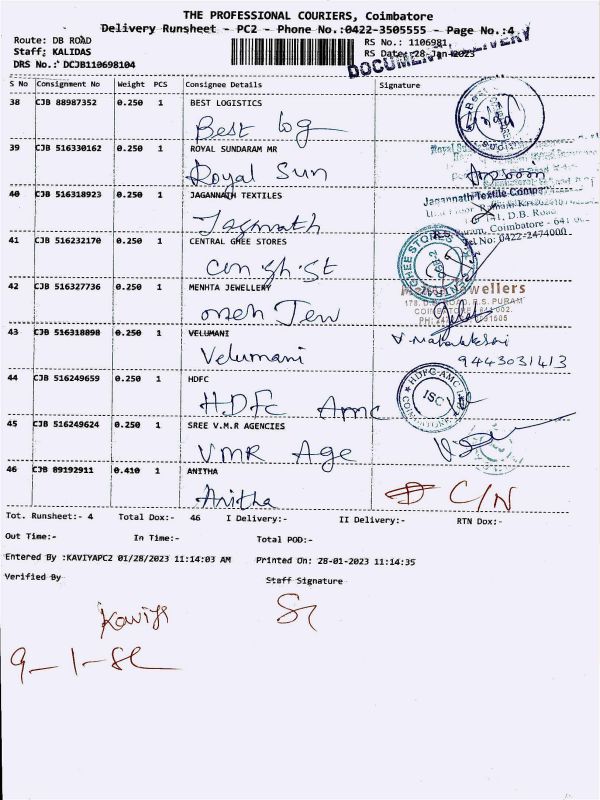 THE PROFESSIONAL COURIERS, Coimbatore
Delivery Runsheet - PC2 - Phone No.:0422-3505555 - Page No.:4
Route: DB ROAD
RS No.: 1106981
Staff: KALIDAS
RS Date: 28-Jan-2023
DRS No.: DCJB110698104
DOCUMENT DELIVERY
S No Consignment No Weight PCS Consignee Details Signature
38 CJB 88987352 0.250 1 BEST LOGISTICS
Best log
39 CJB 516330162 0.250 1 ROYAL SUNDARAM MR
Royal Sun
40 CJB 516318923 0.250 1 JAGANNATH TEXTILES
Jagnnath
Jagannath Textile Company
D.B. Road
Coimbatore - 641
Tel No: 0422-2474000
41 CJB 516232170 0.250 1 CENTRAL GHEE STORES
GHEE STORES
42 CJB 516327736 0.250 1 MENHTA JEWELLERY
meh Jew
Jewellers
R.S. PURAM
43 CJB 516318898 0.250 1 VELUMANI
Velumani
9443031413
44 CJB 516249659 0.250 1 HDFC
HDFC Amc
HDFC-AMC LTD
ISC
45 CJB 516249624 0.250 1 SREE V.M.R AGENCIES
VMR Age
46 CJB 89192911 0.410 1 ANITHA
Anitha
C/N
Tot. Runsheet:- 4 Total Dox:- 46 I Delivery:- II Delivery:- RTN Dox:-
Out Time:- In Time:- Total POD:-
Entered By :KAVIYAPC2 01/28/2023 11:14:03 AM Printed On: 28-01-2023 11:14:35
Verified By Staff Signature
Kaviya